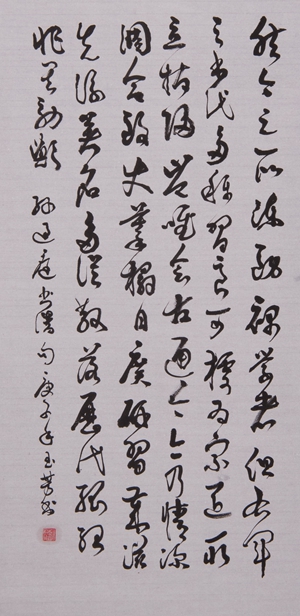 然今之所陳務裨學者但右軍
之書代多稱習良可據為宗匠取
立指歸豈唯會古通今亦乃情深
調合致使摹搨日廣研習歲滋
先後著名多從散落歷代孤紹
非其效歟 孫過庭書譜句 庚子年玉芳書